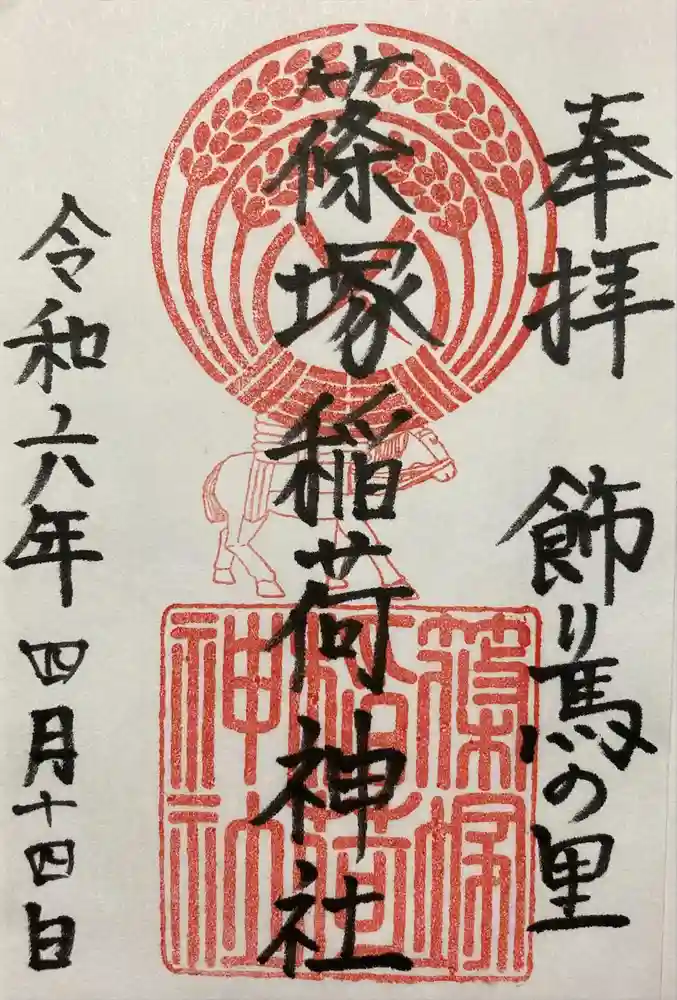 奉拝 飾り馬の里
篠塚稲荷神社
篠塚
稲荷
神社
令和六年四月十四日